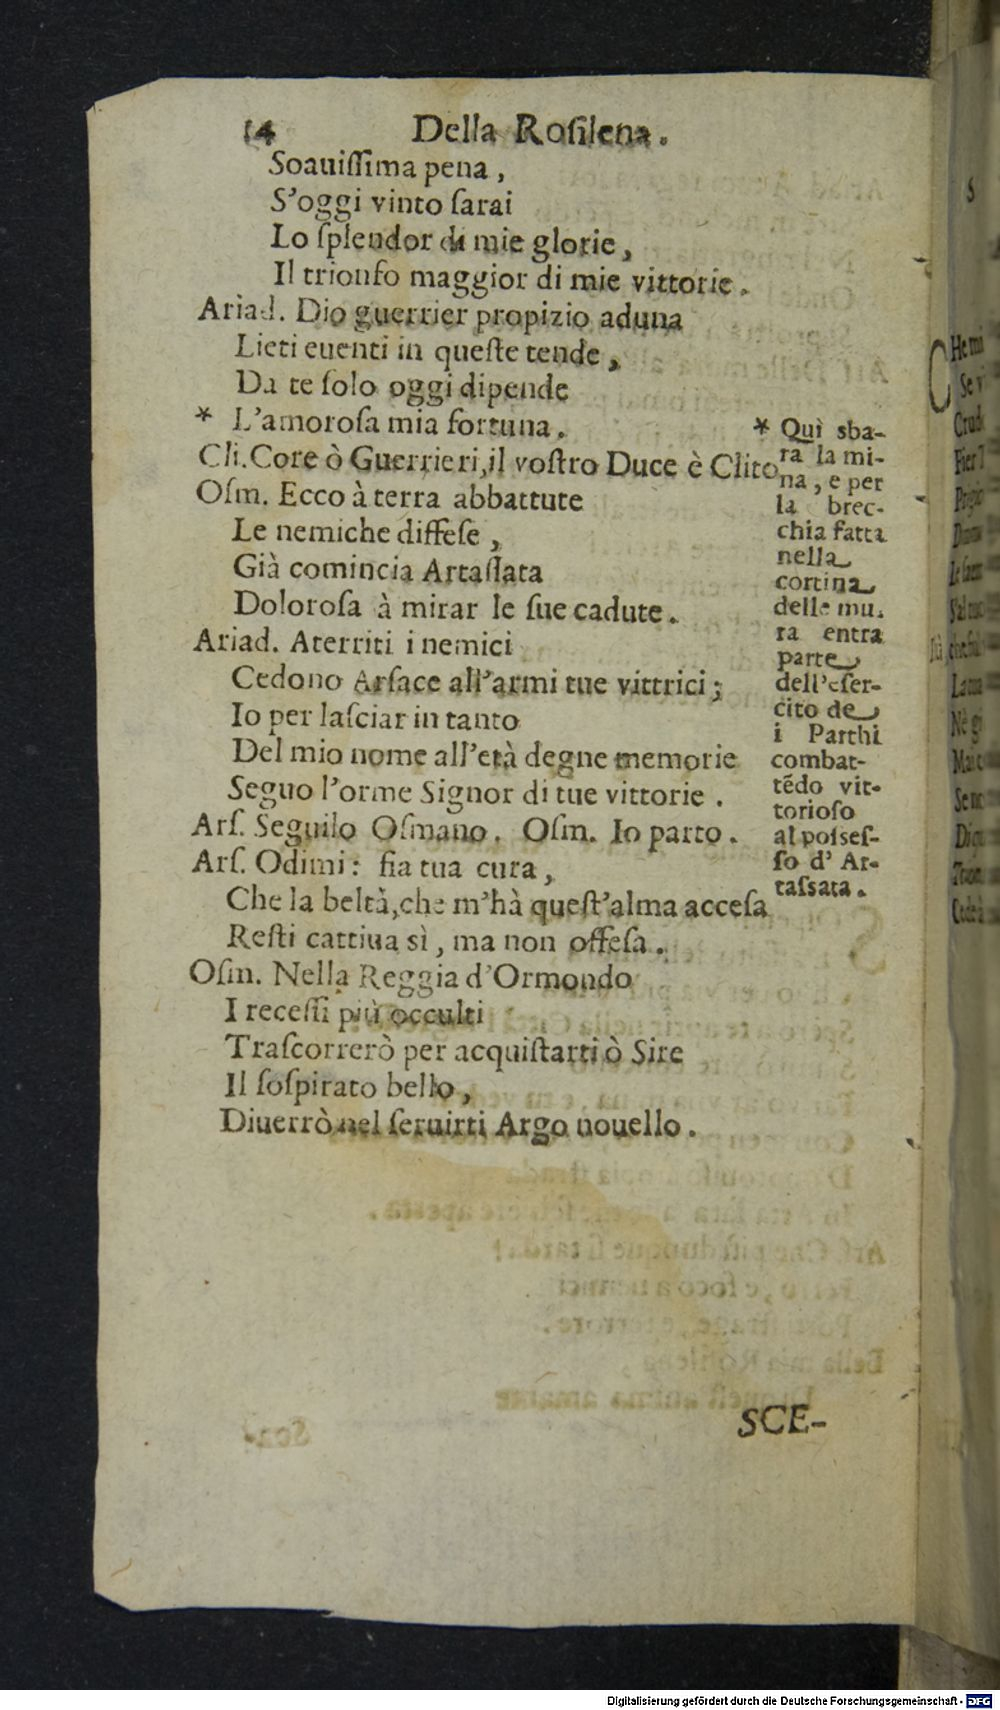 14 Della Roſilena.
Soauiſſima pena,
S'oggi vinto ſarai
Lo ſplendor di mie glorie,
Il trionfo maggior di mie vittorie.
Ariad. Dio guerrier propizio aduna
Lieti euenti in queſte tende,
Da te ſolo oggi dipende
* L'amoroſa mia fortuna.
Cli. Core ò Guerrieri, il voſtro Duce è Clito
Oſm. Ecco à terra abbattute
Le nemiche diffeſe,
Già comincia Artaſſata
Doloroſa à mirar le ſue cadute.
Ariad. Aterriti i nemici
Cedono Arſace all'armi tue vittrici;
Io per laſciar in tanto
Del mio nome all'età degne memorie
Seguo l'orme Signor di tue vittorie.
Arſ. Seguilo Oſmano. Oſm. Io parto.
Arſ. Odimi: fia tua cura,
Che la beltà, che m'hà queſt'alma acceſa
Reſti cattiua sì, ma non offeſa.
Oſm. Nella Reggia d'Ormondo
I receſſi più occulti
Traſcorrerò per acquiſtarti ò Sire
Il ſoſpirato bello,
Diuerrò nel ſeruirti Argo nouello.
* Quì sba-
ra la mi-
na, e per
la brec-
chia fatta
nella
cortina
delle mu.
ra entra
parte
dell'eſer-
cito de
i Parthi
combat-
tẽdo vit-
torioſo
al poſseſ-
ſo d' Ar-
taſsata.
SCE-
Digitalisierung gefördert durch die Deutsche Forschungsgemeinschaft - DFG